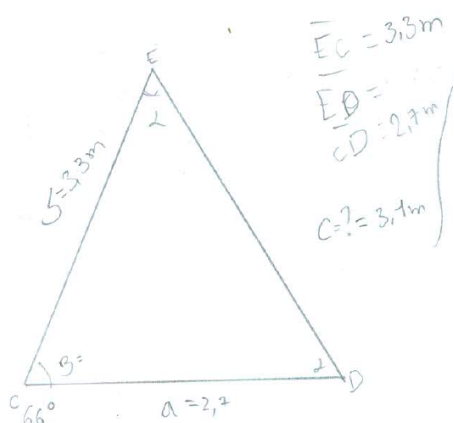 E
α
EC = 3,3m
ED =
CD = 2,7m
C=? = 3,1m
b=3,3m
β=
α
C
66°
a = 2,7
D